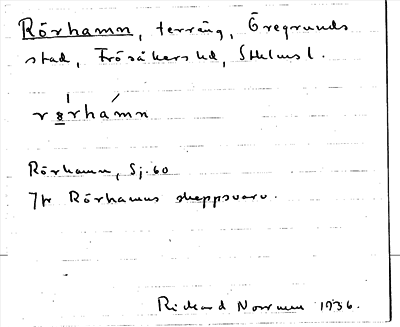 Rörhamn, terräng, Öregrunds
stad, Frösåkers hd, Sthlms l.
Rörhamn, Sj. 60
Jfr Rörhamns skeppsvarv.
Rickard 1936.